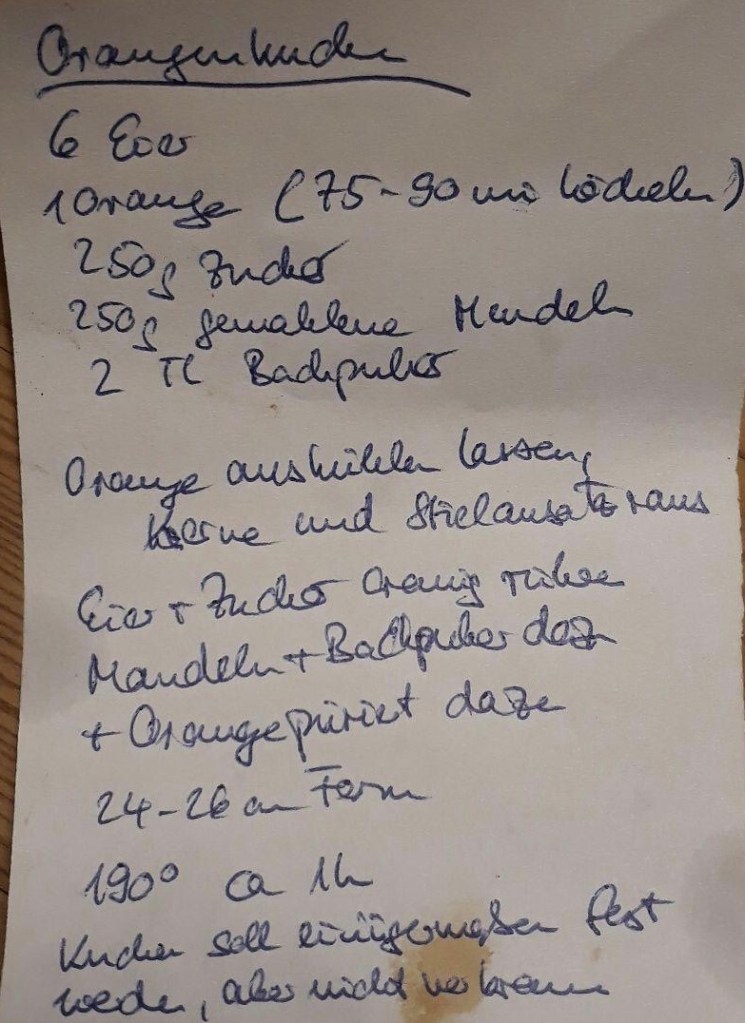 Orangenkuchen
6 Eier
1 Orange (75-90 min köcheln)
250g Zucker
250g gemahlene Mandeln
2 TL Backpulver
Orange auskühlen lassen,
Kerne und Stielansatz raus
Eier + Zucker cremig rühren
Mandeln + Backpulver dazu
+ Orange püriert dazu
24-26 cm Form
190° ca 1h
Kuchen soll einigermaßen fest
werden, aber nicht verbrennen